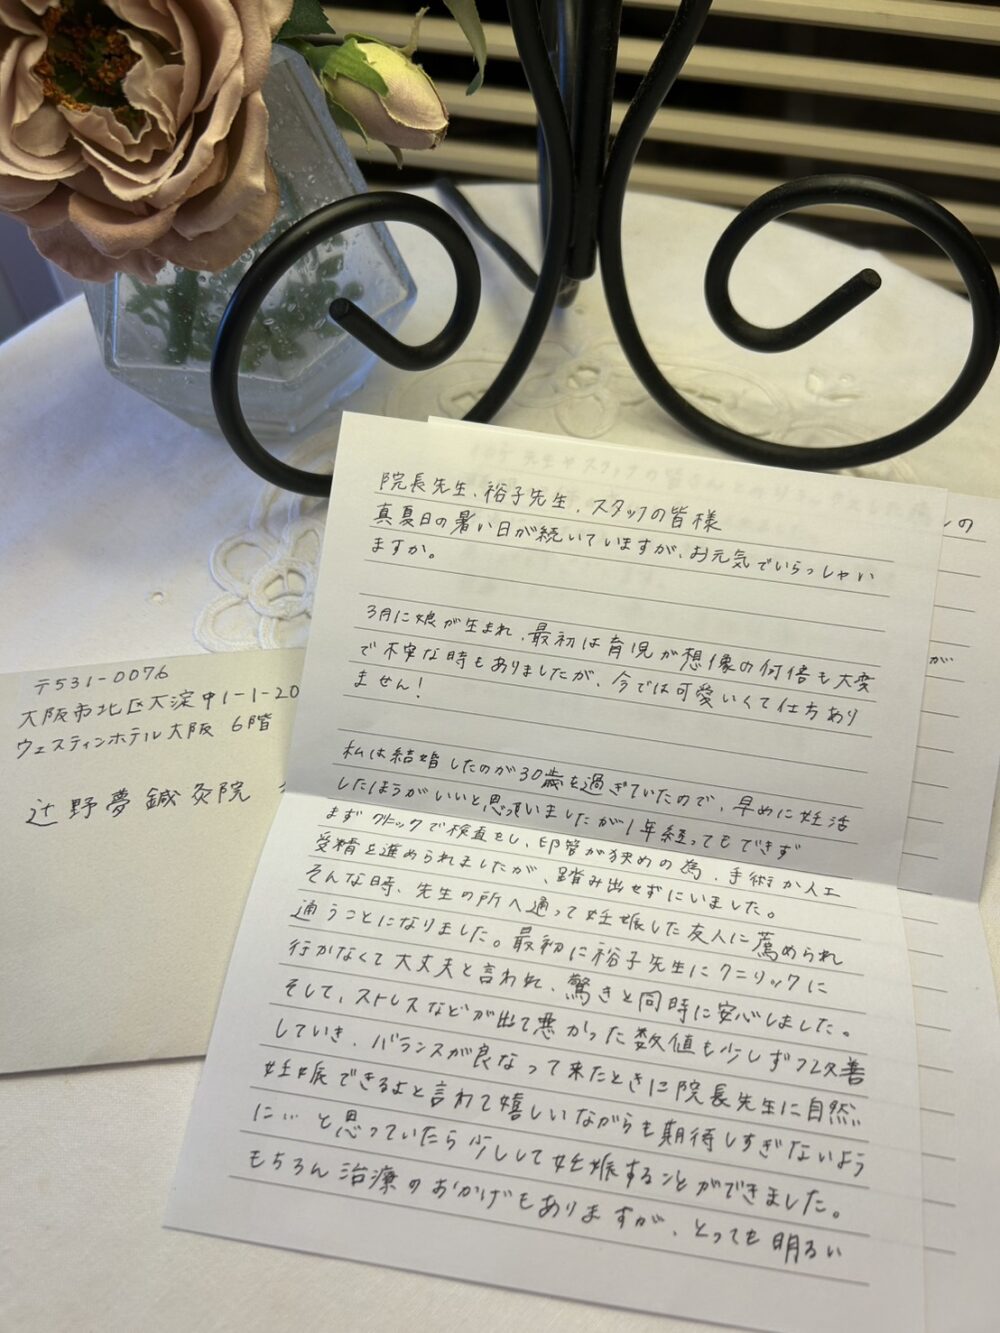 院長先生、裕子先生、スタッフの皆様
真夏日の暑い日が続いていますが、お元気でいらっしゃい
ますか。
3月に娘が生まれ、最初は育児が想像の何倍も大変
で不安な時もありましたが、今では可愛いくて仕方あり
ません!
私は結婚したのが30歳を過ぎていたので、早めに妊活
したほうがいいと思っていましたが1年経ってもできず
まずクリニックで検査をし、卵管が狭めの為、手術か人工
受精を進められましたが、踏み出せずにいました。
そんな時、先生の所へ通って妊娠した友人に薦められ
通うことになりました。最初に裕子先生にクリニックに
行かなくて大丈夫と言われ、驚きと同時に安心しました。
そして、ストレスなどが出て悪かった数値も少しずつ改善
していき、バランスが良なって来たときに院長先生に自然
妊娠できるよと言われて嬉しいながらも期待しすぎないよう
に…と思っていたら少しして妊娠することができました。
もちろん治療のおかげもありますが、とっても明るい
〒531-0076
大阪市北区大淀中1-1-20
ウェスティンホテル大阪 6階
辻野夢鍼灸院